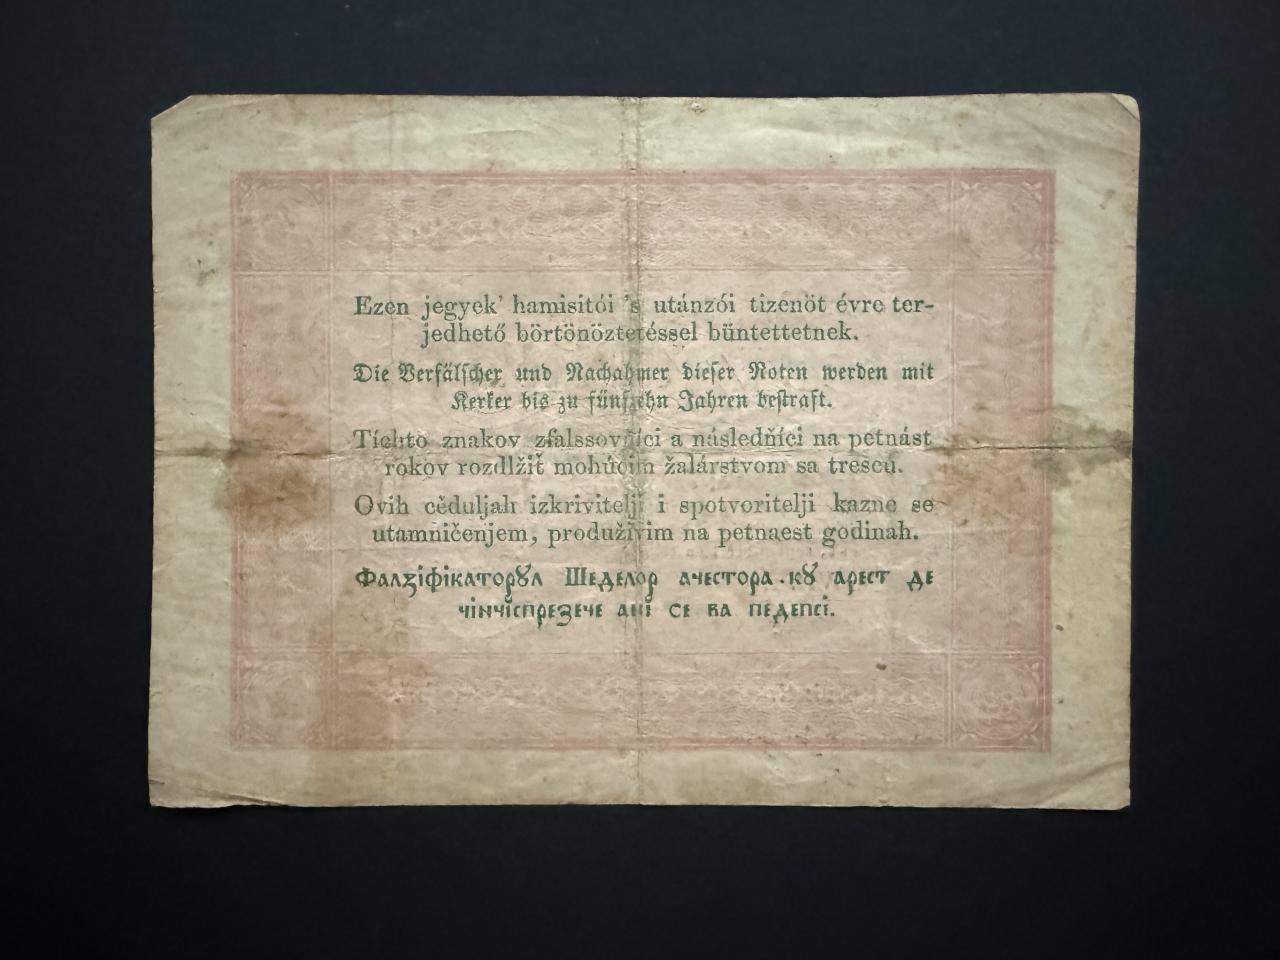 Ezen jegyek’ hamisítói ’s utánzói tizenöt évre ter-
jedhető börtönöztetéssel büntettetnek.
Die Verfälscher und Nachahmer dieser Noten werden mit
Kerker bis zu fünfzehn Jahren bestraft.
Tíchto znakov zfalssovňíci a následňíci na petnást
rokov rozdlžiť mohúcim žalárstvom sa trescú.
Ovih cěduljah izkrivitelji i spotvoritelji kazne se
utamničenjem, produživim na petnaest godinah.
Фалзіфікаторꙋл Шеделор ачестора.кꙋ арест де
чінчіспрезече ані се ва педепсі.